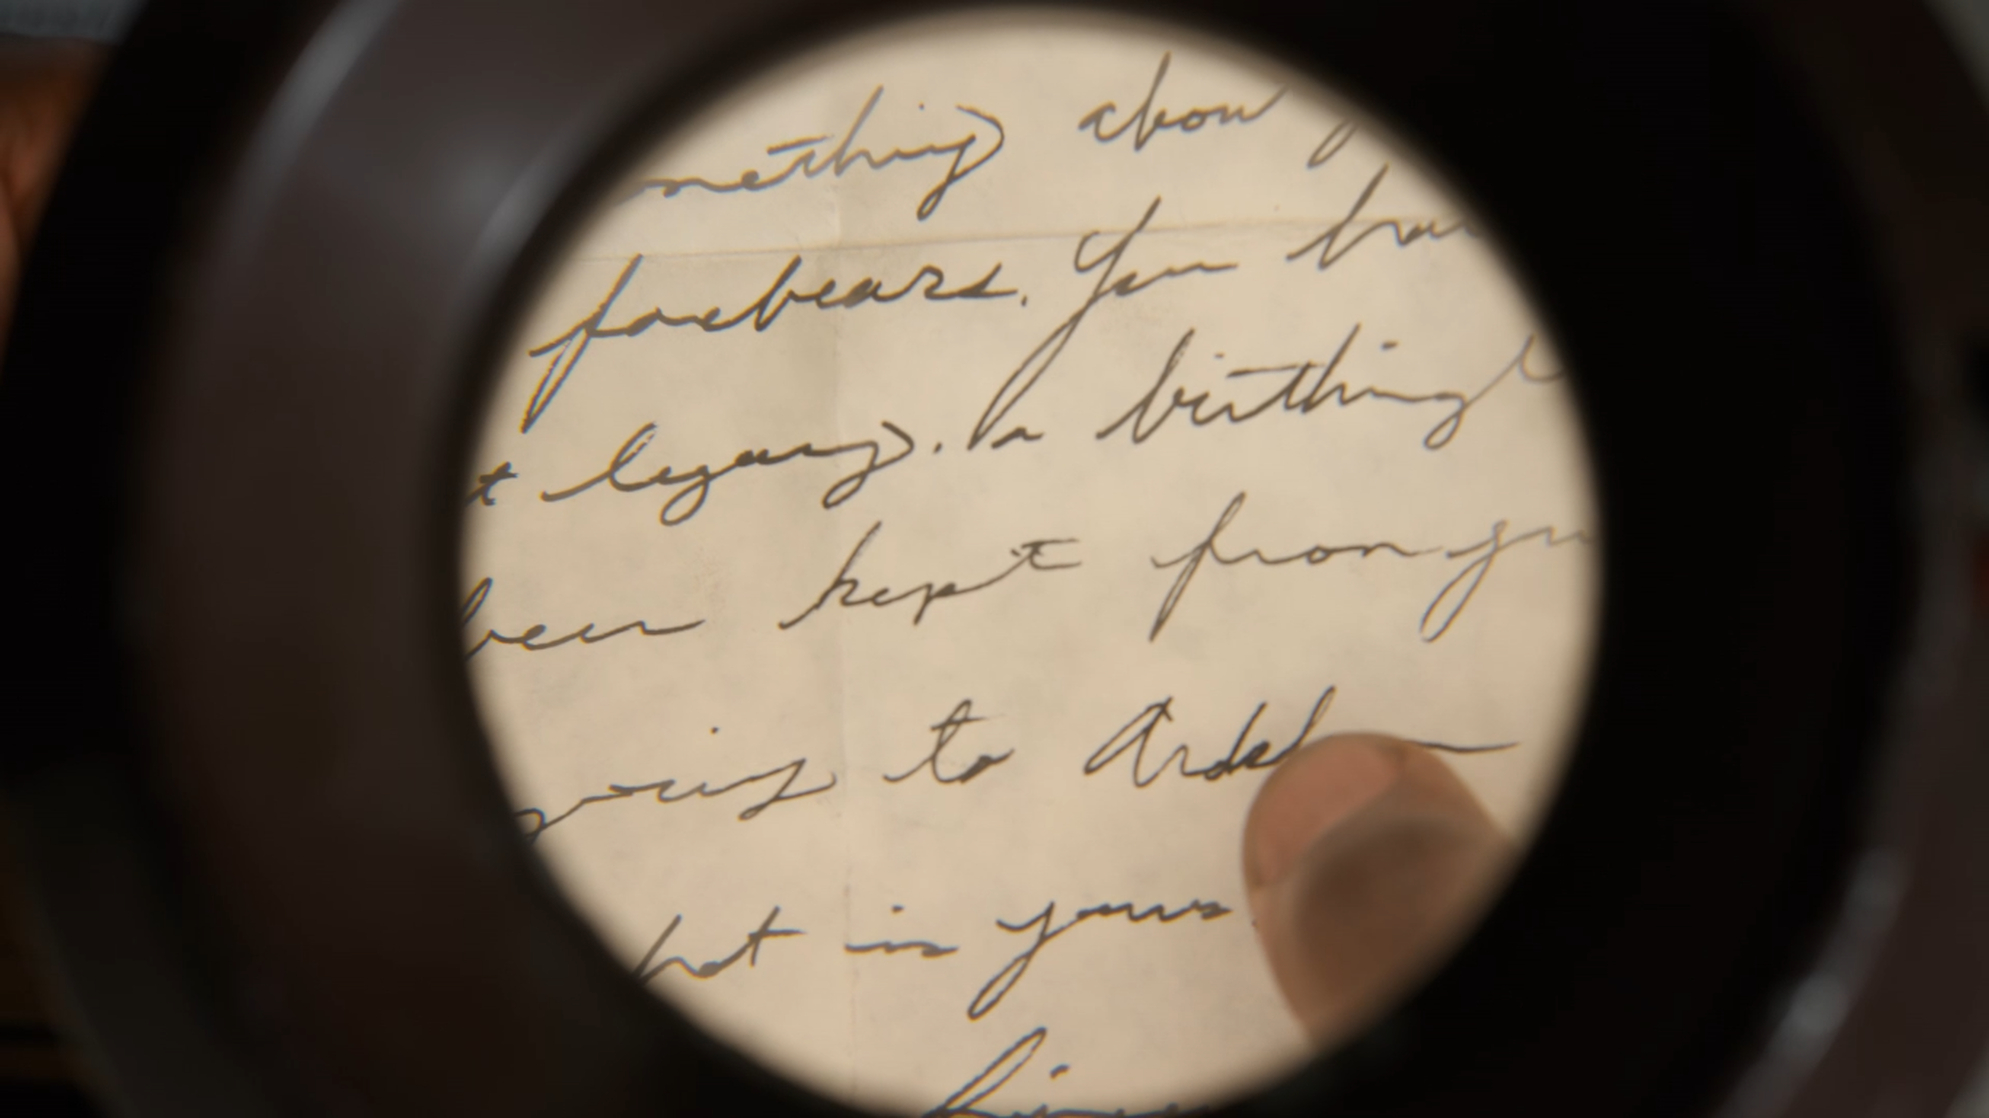 mething abou y
forebears. You hav
t legacy. A birthrigh
been kept from you
going to Ard
hat is yours